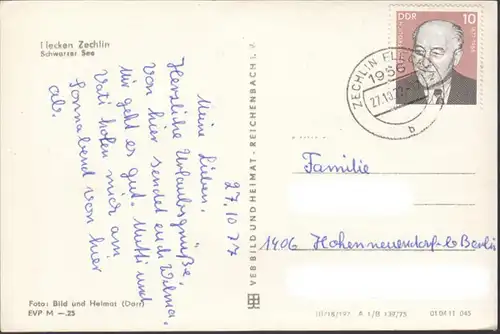 Flecken Zechlin
Schwarzer See
27.10.77
Meine Lieben,
Herzliche Urlaubsgrüße
von hier sendet euch Wilma.
Mir geht es gut. Mutti und
Vati holen mich am
Sonnabend von hier
ab.
Foto: Bild und Heimat (Darr)
EVP M —.25
VEB BILD UND HEIMAT · REICHENBACH I. V.
DDR
10
ZECHLIN FLEC
1956
27.10.77
b
Familie
1406 Hohenneuendorf b/Berlin
A 1/B 137/75
01 04 11 045